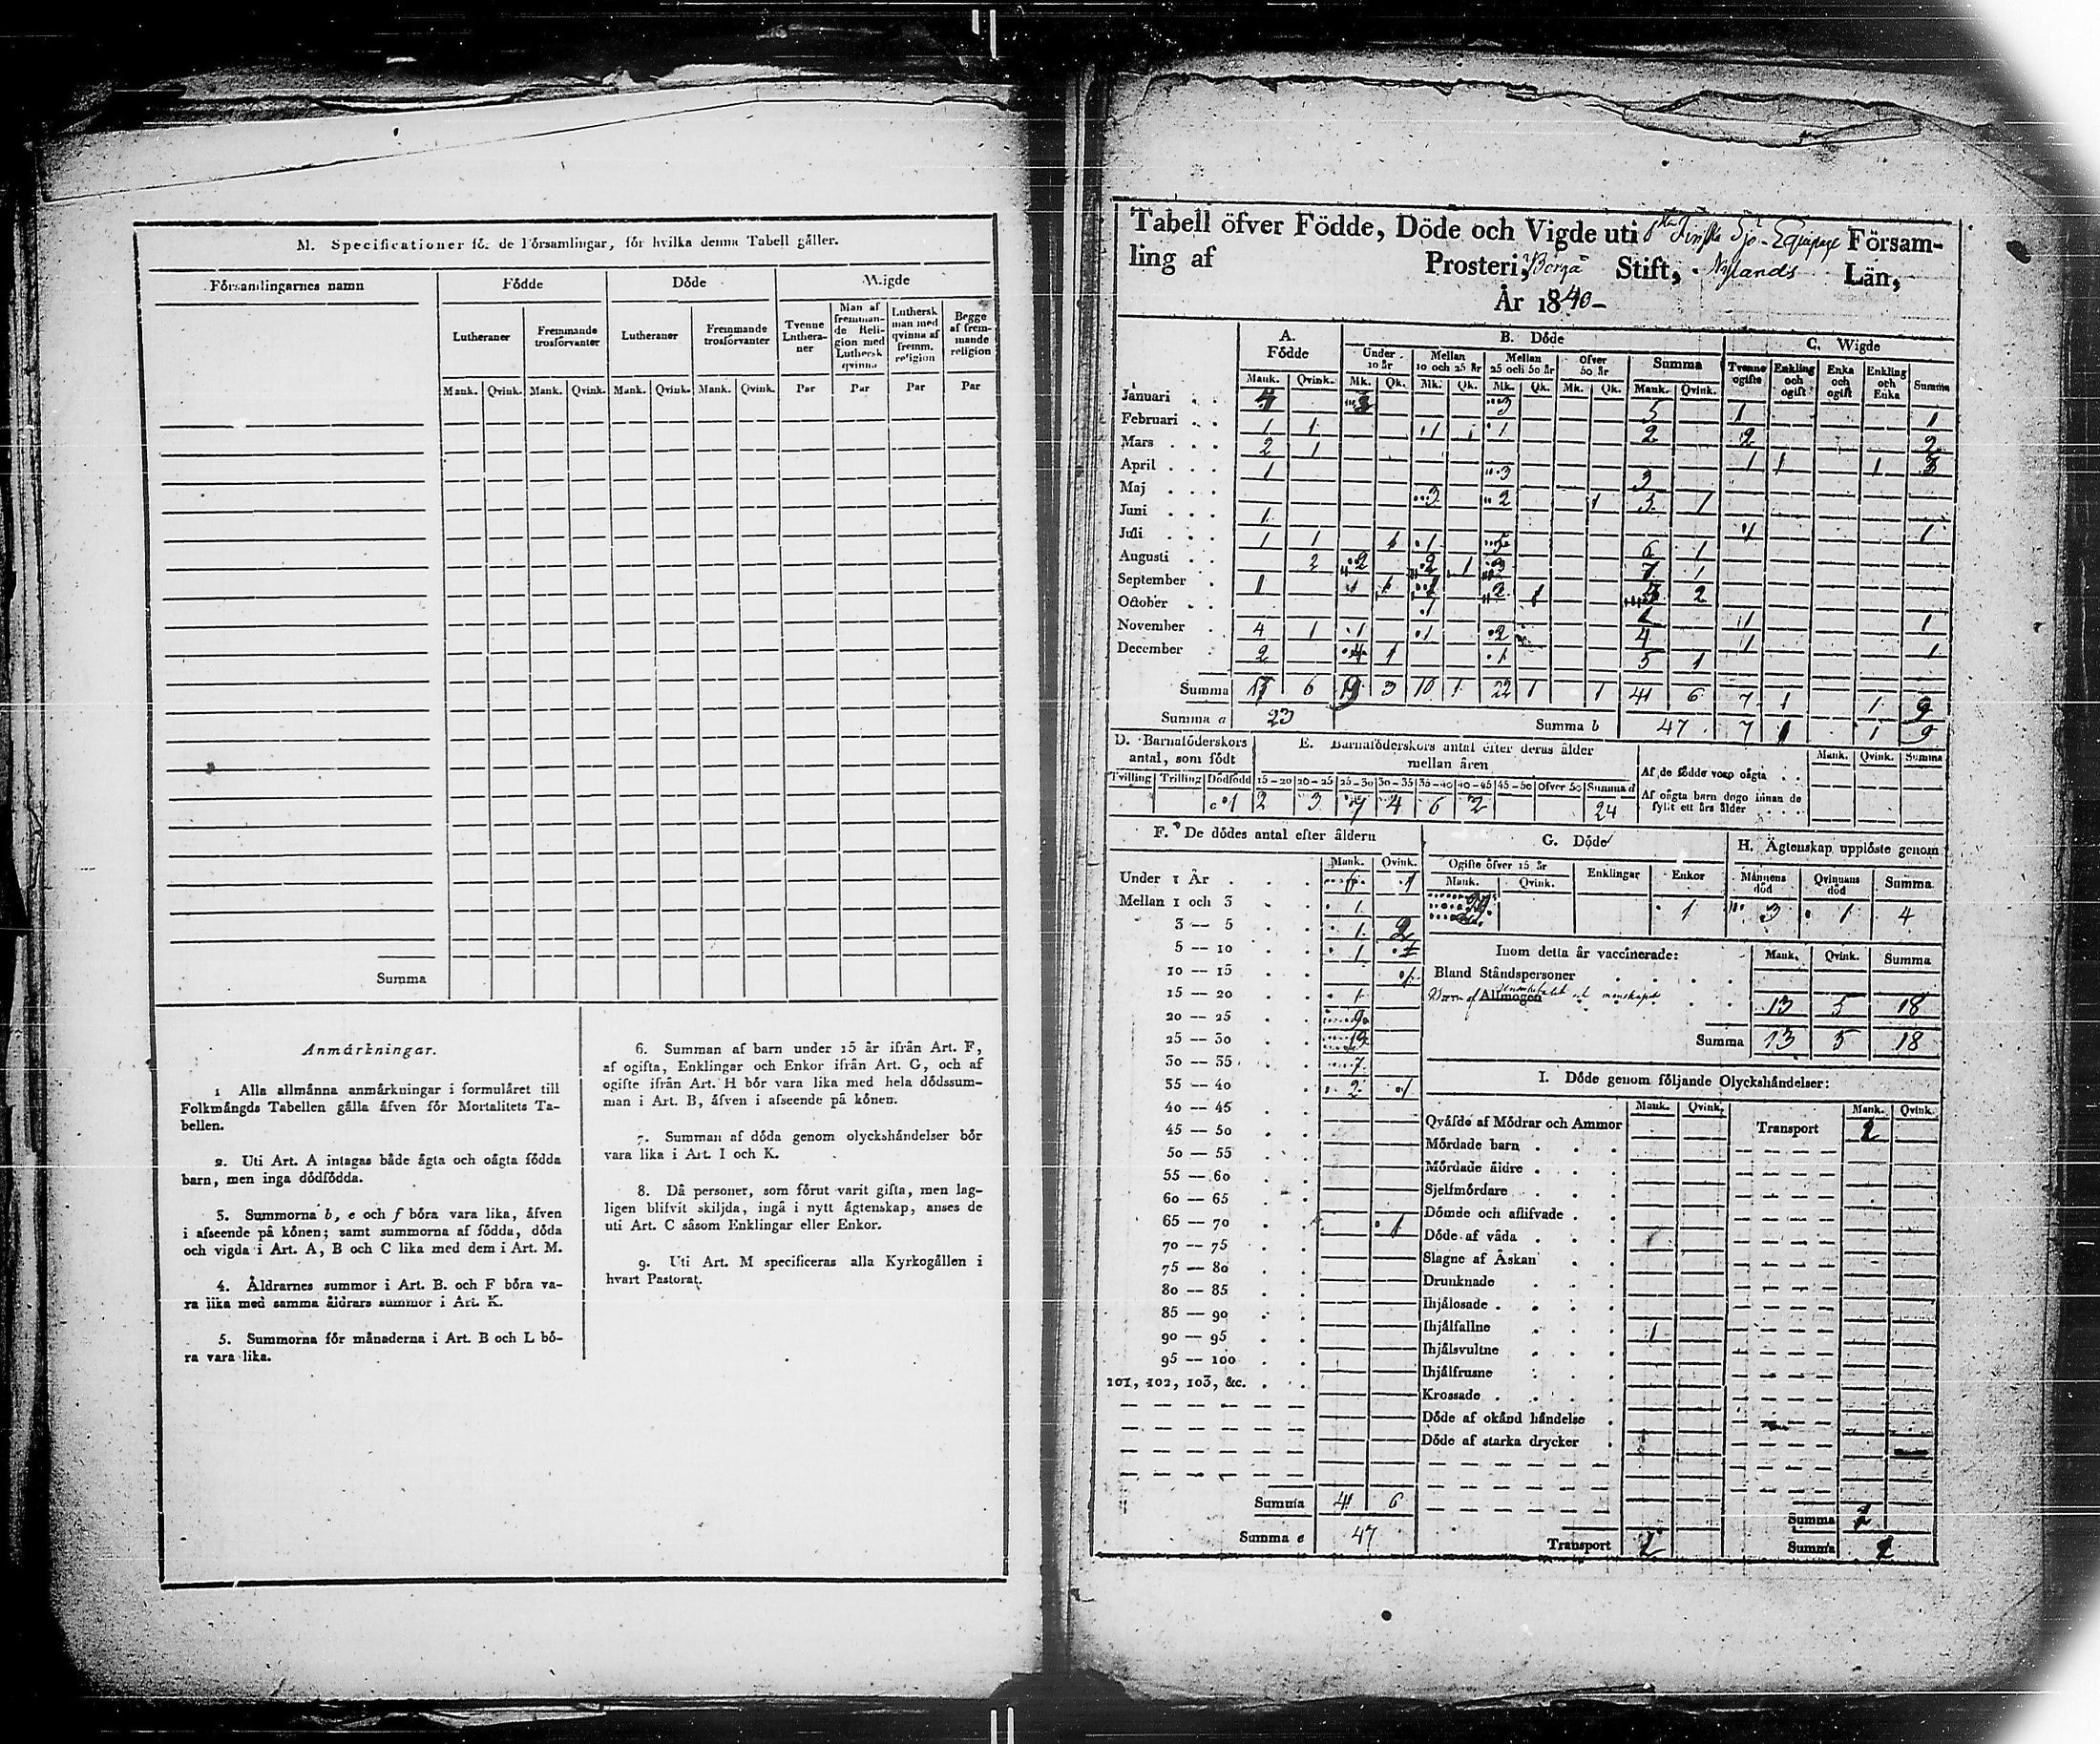 M. Specificationer fö. de Församlingar, för hvilka denna Tabell gäller.
Församlingarnes namn
Födde
Döde
Wigde
Lutheraner
Fremmande trosförvanter
Lutheraner
Fremmande trosförvanter
Tvenne Lutheraner
Man af fremmande Religion med Luthersk qvinna
Luthersk man med qvinna af fremm. religion
Begge af fremmande religion
Mank. Qvink. Mank. Qvink. Mank. Qvink. Mank. Qvink. Par Par Par Par
Summa
Anmärkningar.
1 Alla allmänna anmärkningar i formuläret till
Folkmängds Tabellen gälla äfven för Mortalitets Ta-
bellen.
2. Uti Art. A intagas både ägta och oägta födda
barn, men inga dödfödda.
3. Summorna b, e och f böra vara lika, äfven
i afseende på könen; samt summorna af födda, döda
och vigda i Art. A, B och C lika med dem i Art. M.
4. Åldrarnes summor i Art. B. och F böra va-
ra lika med samma åldrars summor i Art. K.
5. Summorna för månaderna i Art. B och L bö-
ra vara lika.
6. Summan af barn under 15 år ifrån Art. F,
af ogifta, Enklingar och Enkor ifrån Art. G, och af
ogifte ifrån Art. H bör vara lika med hela dödssum-
man i Art. B, äfven i afseende på könen.
7. Summan af döda genom olyckshändelser bör
vara lika i Art. I och K.
8. Då personer, som förut varit gifta, men lag-
ligen blifvit skiljda, ingå i nytt ägtenskap, anses de
uti Art. C såsom Enklingar eller Enkor.
9. Uti Art. M specificeras alla Kyrkogällen i
hvart Pastorat.
Tabell öfver Födde, Döde och Vigde uti 1sta Finska Sjö-Equipage Försam-
ling af Prosteri, Borgå Stift, Nylands Län,
År 1840
A. Födde
B. Döde
C. Wigde
Under 10 år
Mellan 10 och 25 år
Mellan 25 och 50 år
Öfver 50 år
Summa
Tvenne ogifte
Enkling och ogift
Enka och ogift
Enkling och Enka
Summa
Mank. Qvink. Mk. Qk. Mk. Qk. Mk. Qk. Mk. Qk. Mank. Qvink.
Januari 4 3 5 1 1
Februari 1 1 1 1 2 2 2
Mars 2 1 1 1 1 3
April 1 3 3
Maj 3 2 1 5 1
Juni 1 1 1
Juli 1 1 1 1 5 6 1
Augusti 2 2 2 1 3 7 1
September 1 1 1 2 1 2
October 1 1 1
November 4 1 1 1 2 4 1 1
December 2 4 1 1 5 1
Summa 17 6 9 3 10 1 22 1 1 41 6 7 1 1 9
Summa a 23 Summa b 47 7 1 1 9
D. Barnaföderskors antal, som födt
E. Barnaföderskors antal efter deras ålder
mellan åren
Tvilling Trilling Dödfödd 15-20 20-25 25-30 30-35 35-40 40-45 45-50 Öfver 50 Summa d
1 2 3 7 4 6 2 24
Mank. Qvink. Summa
Af de födde voro oägta . .
Af oägta barn dogo innan de
fyllt ett års ålder . . .
F. De dödes antal efter åldern
Mank. Qvink.
Under 1 År . . . 6 1
Mellan 1 och 3 . . 1
3 — 5 . . 1 2
5 — 10 . . 1
10 — 15 . . 1
15 — 20 . . 1
20 — 25 . . 9
25 — 30 . . 13
30 — 35 . . 7
35 — 40 . . 2 1
40 — 45 . .
45 — 50 . .
50 — 55 . .
55 — 60 . .
60 — 65 . .
65 — 70 . . 1
70 — 75 . .
75 — 80 . .
80 — 85 . .
85 — 90 . .
90 — 95 . .
95 — 100 . .
101, 102, 103, &c. . .
Summa 41 6
Summa e 47
G. Döde
Ogifte öfver 15 år
Mank. Qvink.
Enklingar
Enkor
1
H. Ägtenskap upplöste genom
Männens död
Qvinnans död
Summa
3 1 4
Inom detta år vaccinerade: Mank. Qvink. Summa
Bland Ståndspersoner
Barn af Allmogen manskapet 13 5 18
Summa 13 5 18
I. Döde genom följande Olyckshändelser:
Mank. Qvink. Mank. Qvink.
Qväfde af Mödrar och Ammor
Mördade barn . . .
Mördade äldre . . .
Sjelfmördare . . .
Dömde och aflifvade . .
Döde af våda . . .
Slagne af Åskan . .
Drunknade . . .
Ihjälosade . . . .
Ihjälfallne . . . 1
Ihjälsvultne . . .
Ihjälfrusne . . .
Krossade . . . .
Döde af okänd händelse .
Döde af starka drycker .
Transport 2
Transport 2
Summa 2
Summa 2